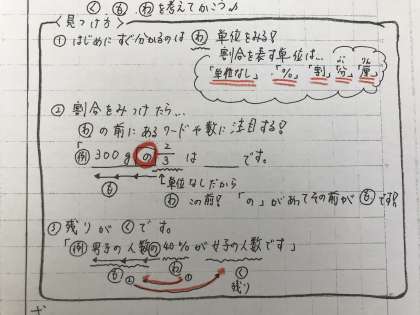 く、も、わを考えてかこう♪
〈見つけ方〉
① はじめにすぐ分かるのは わ 単位をみる?
割合を表す単位は…
「単位なし」・「%」「割」「分」「厘」
② 割合をみつけたら…
わの前にあるワードや数に注目する?
例 300gの 2/3 は ___ です。
も ↑単位なしだから
わ この前? 「の」があってその前が も です?
③ 残りが く です。
「例 男子の人数の40%が女子の人数です」
も② わ① く
残り